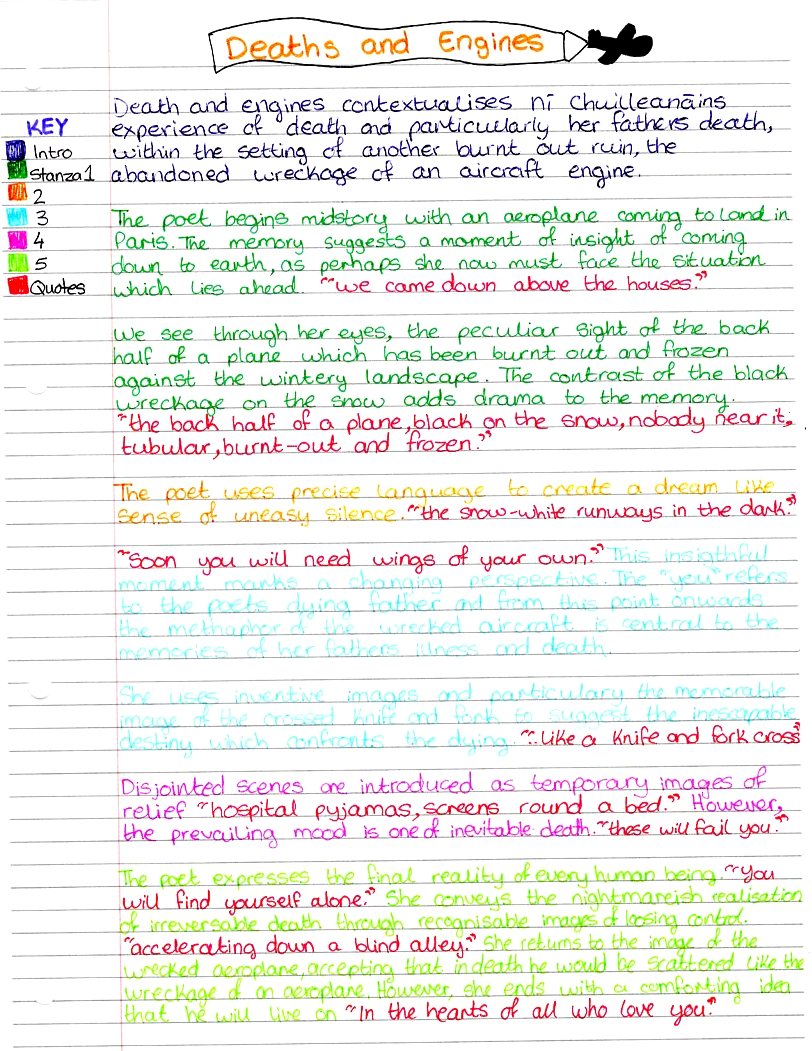 Deaths and Engines
KEY
Intro
Stanza 1
2
3
4
5
Quotes
Death and engines contextualises nī Chuilleanāins
experience of death and particularly her fathers death,
within the setting of another burnt out ruin, the
abandoned wreckage of an aircraft engine.
The poet begins midstory with an aeroplane coming to land in
Paris. The memory suggests a moment of insight of coming
down to earth, as perhaps she now must face the situation
which lies ahead. "we came down above the houses."
We see through her eyes, the peculiar sight of the back
half of a plane which has been burnt out and frozen
against the wintery landscape. The contrast of the black
wreckage on the snow adds drama to the memory.
"the back half of a plane, black on the snow, nobody near it,
tubular, burnt-out and frozen."
The poet uses precise language to create a dream like
sense of uneasy silence. "the snow-white runways in the dark."
"Soon you will need wings of your own." This insigthful
moment marks a changing perspective. The "you" refers
to the poets dying father and from this point onwards
the methaphor of the wrecked aircraft is central to the
memories of her fathers illness and death.
She uses inventive images and particulary the memorable
image of the crossed knife and fork to suggest the inescapable
destiny which confronts the dying. ":. Like a knife and fork cross"
Disjointed scenes are introduced as temporary images of
relief "hospital pyjamas, screens round a bed." However,
the prevailing mood is one of inevitable death. "these will fail you."
The poet expresses the final reality of every human being. "You
will find yourself alone." She conveys the nightmareish realisation
of irreversable death through recognisable images of loosing control.
"accelerating down a blind alley." She returns to the image of the
wrecked aeroplane, accepting that in death he would be scattered like the
wreckage of an aeroplane. However, she ends with a comforting idea
that he will live on "In the hearts of all who love you."